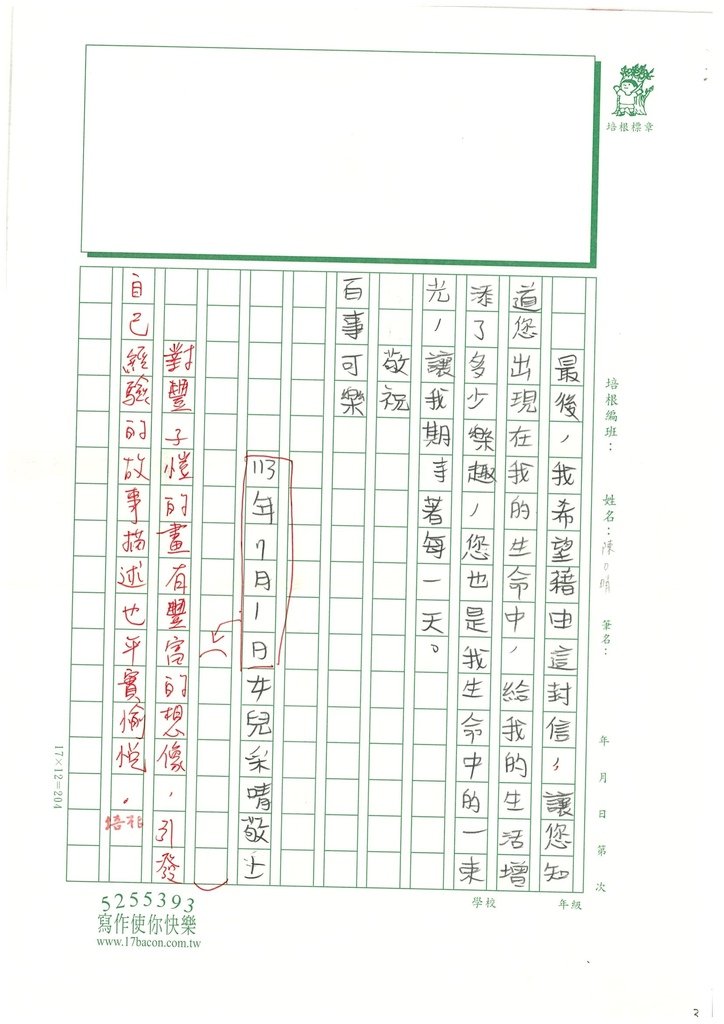 培根標章
培根編班：
姓名：陳
筆名：
年 月 日 第 次
最後，我希望藉由這封信，讓您知
道您出現在我的生命中，給我的生活增
添了多少樂趣，您也是我生命中的一束
光，讓我期事著每一天。
敬祝
百事可樂
113年7月1日女兒采晴敬上
對豐子愷的畫有豐富的想像，引發
自己經驗的故事描述也平實愉悅。
培根
17×12=204
學校
年級
5255393
寫作使你快樂
www.17bacon.com.tw